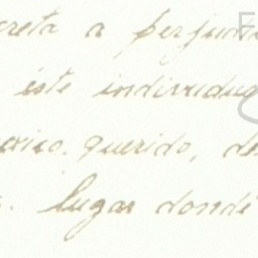 creta a perjudi
este individuo
exico querido, de
lugar donde